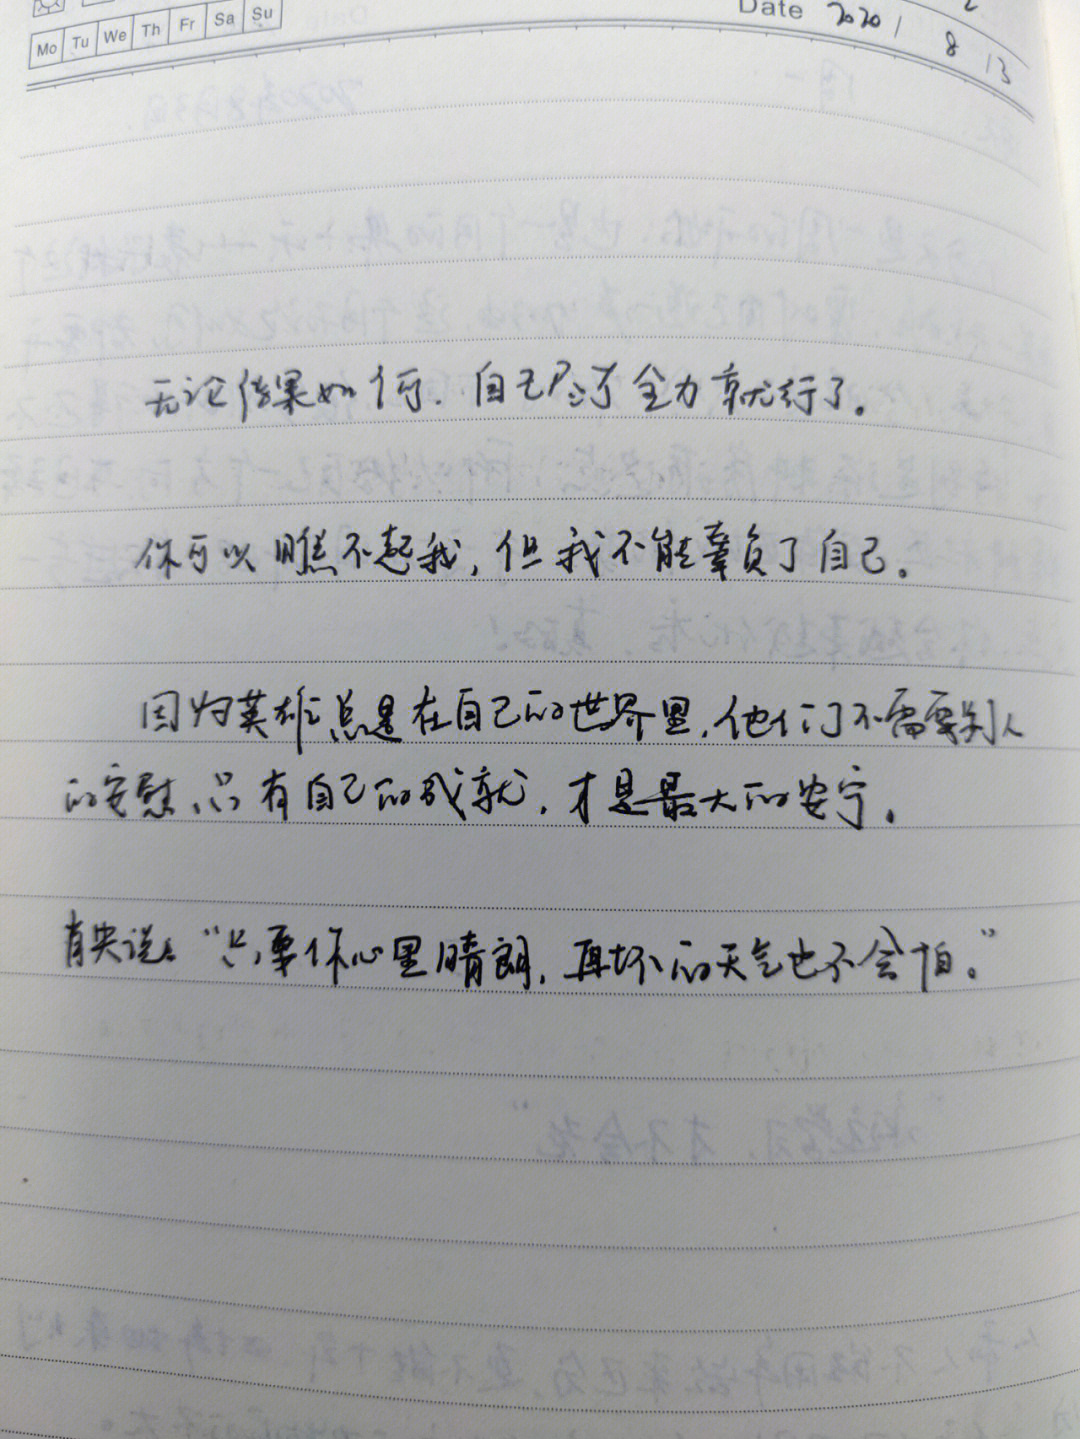 Mo Tu We Th Fr Sa Su
Date 2020 / 8 13
无论结果如何，自己尽了全力就行了。
你可以瞧不起我，但我不能辜负了自己。
因为英雄总是在自己的世界里，他们不需要别人
的安慰，只有自己的成就，才是最大的安宁。
有央说："只要你心里晴朗，再坏的天气也不会怕。"